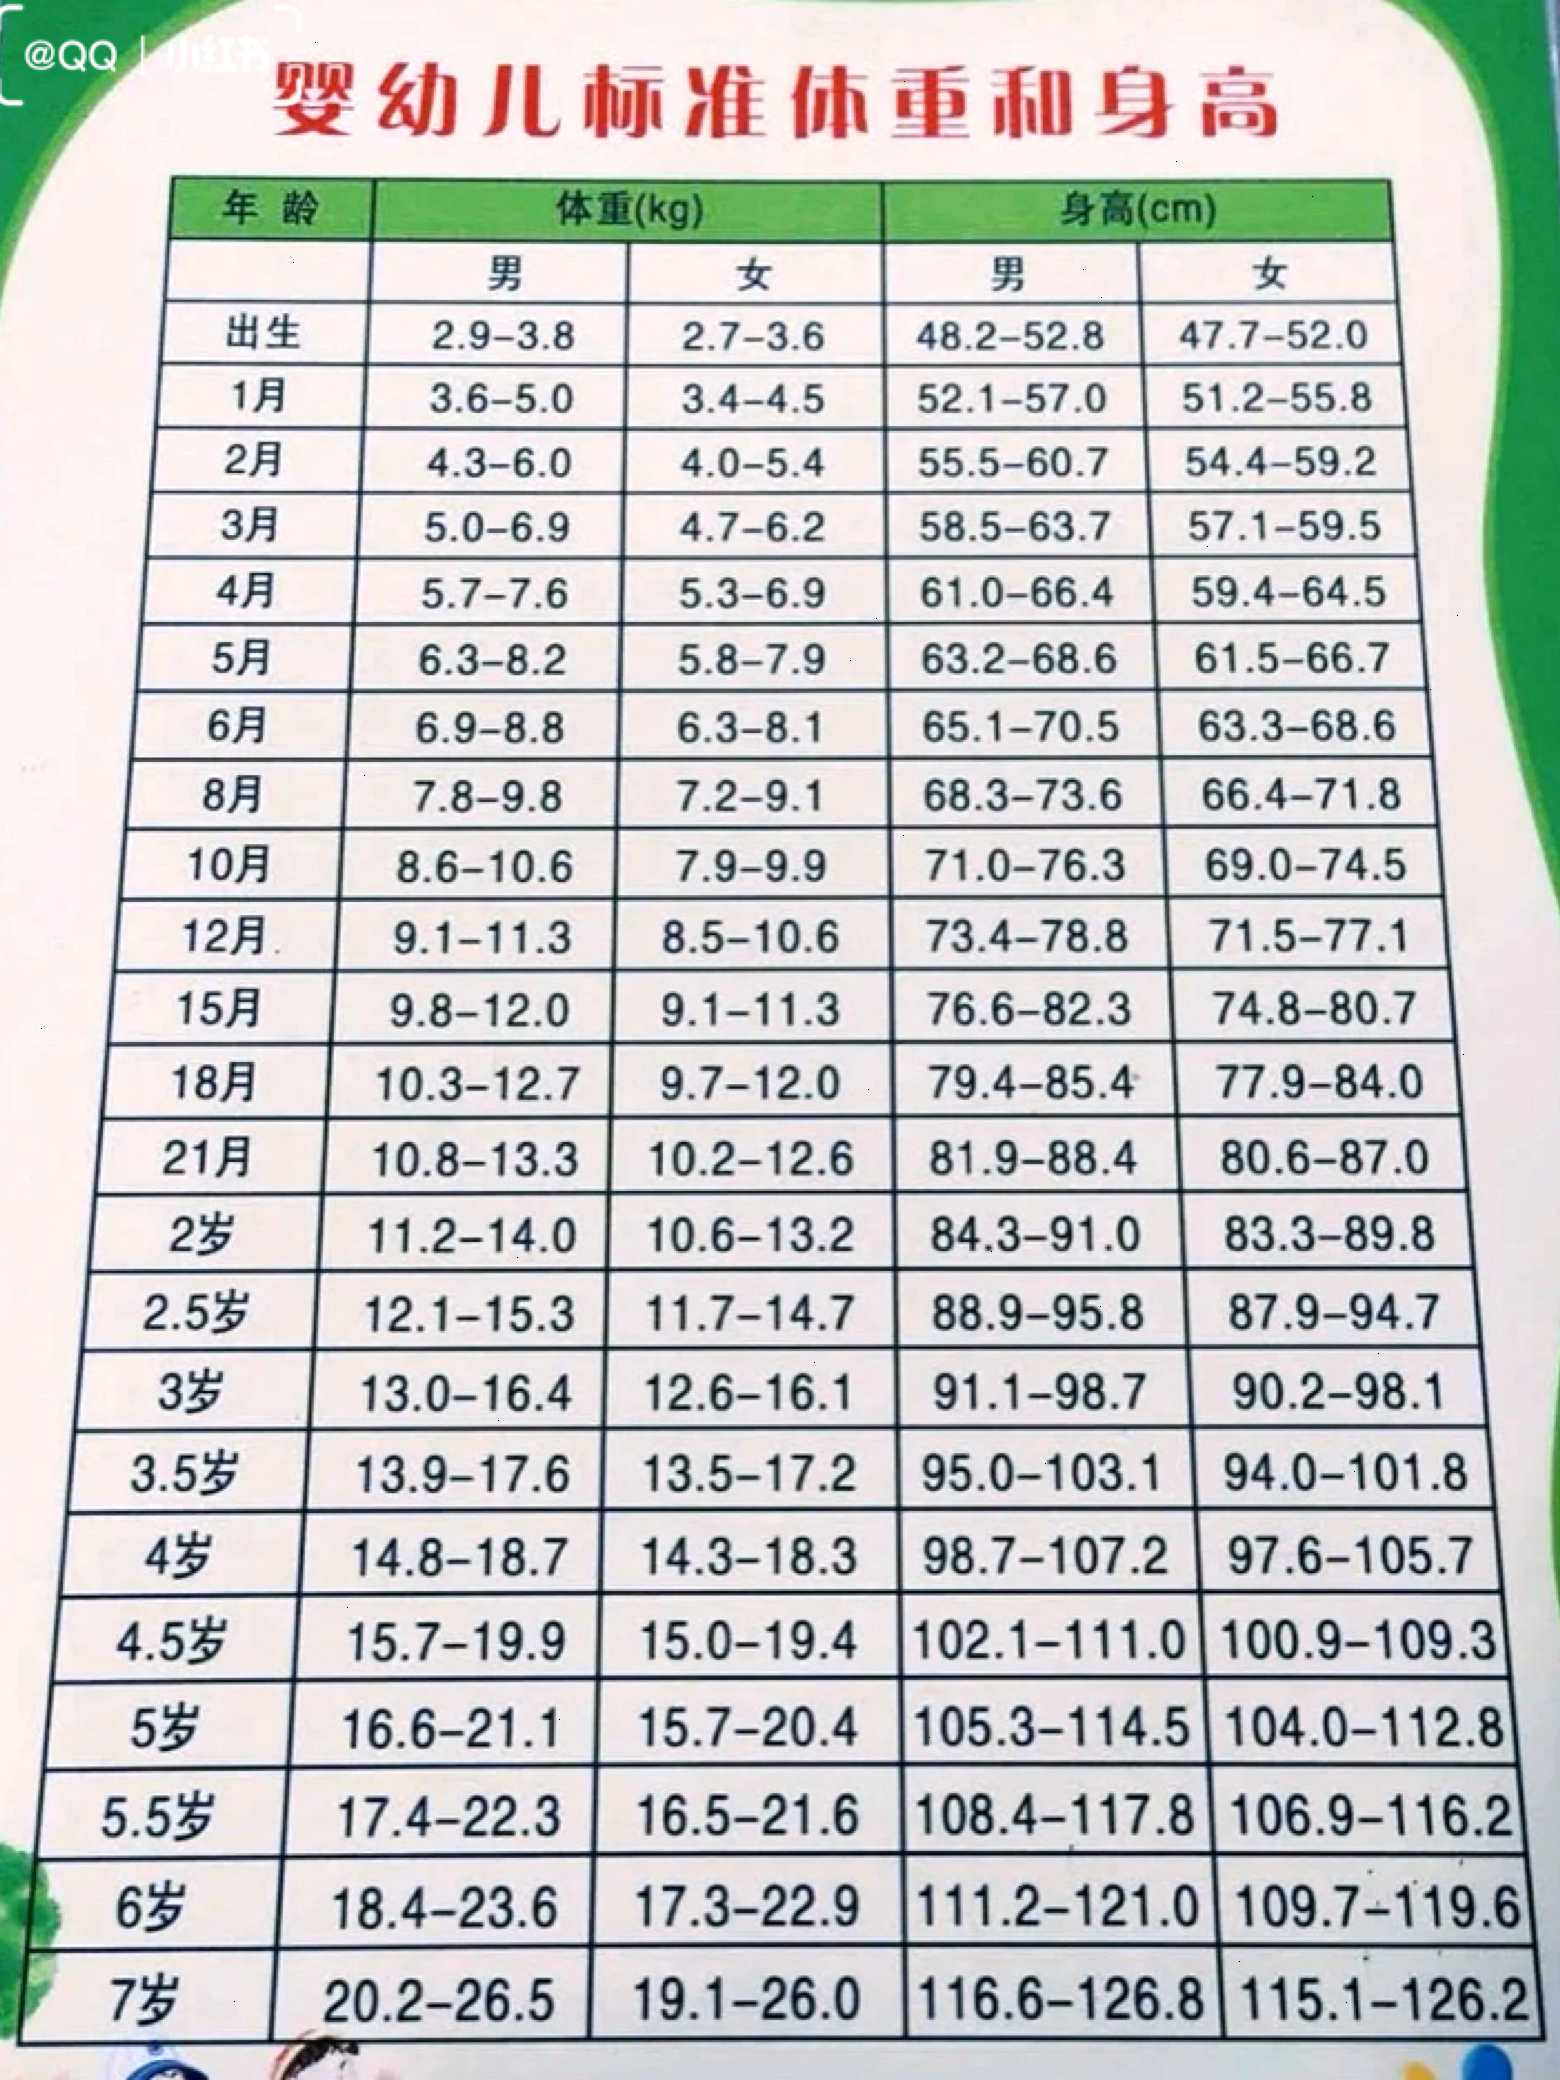 @QQ | 小红书
婴幼儿标准体重和身高
年 龄 体重(kg) 身高(cm)
男 女 男 女
出生 2.9–3.8 2.7–3.6 48.2–52.8 47.7–52.0
1月 3.6–5.0 3.4–4.5 52.1–57.0 51.2–55.8
2月 4.3–6.0 4.0–5.4 55.5–60.7 54.4–59.2
3月 5.0–6.9 4.7–6.2 58.5–63.7 57.1–59.5
4月 5.7–7.6 5.3–6.9 61.0–66.4 59.4–64.5
5月 6.3–8.2 5.8–7.9 63.2–68.6 61.5–66.7
6月 6.9–8.8 6.3–8.1 65.1–70.5 63.3–68.6
8月 7.8–9.8 7.2–9.1 68.3–73.6 66.4–71.8
10月 8.6–10.6 7.9–9.9 71.0–76.3 69.0–74.5
12月 9.1–11.3 8.5–10.6 73.4–78.8 71.5–77.1
15月 9.8–12.0 9.1–11.3 76.6–82.3 74.8–80.7
18月 10.3–12.7 9.7–12.0 79.4–85.4 77.9–84.0
21月 10.8–13.3 10.2–12.6 81.9–88.4 80.6–87.0
2岁 11.2–14.0 10.6–13.2 84.3–91.0 83.3–89.8
2.5岁 12.1–15.3 11.7–14.7 88.9–95.8 87.9–94.7
3岁 13.0–16.4 12.6–16.1 91.1–98.7 90.2–98.1
3.5岁 13.9–17.6 13.5–17.2 95.0–103.1 94.0–101.8
4岁 14.8–18.7 14.3–18.3 98.7–107.2 97.6–105.7
4.5岁 15.7–19.9 15.0–19.4 102.1–111.0 100.9–109.3
5岁 16.6–21.1 15.7–20.4 105.3–114.5 104.0–112.8
5.5岁 17.4–22.3 16.5–21.6 108.4–117.8 106.9–116.2
6岁 18.4–23.6 17.3–22.9 111.2–121.0 109.7–119.6
7岁 20.2–26.5 19.1–26.0 116.6–126.8 115.1–126.2